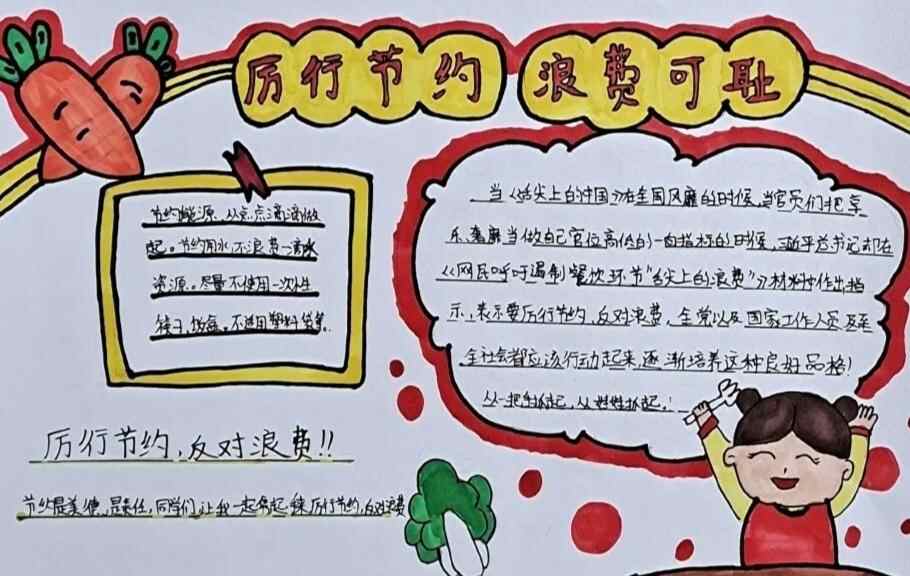 厉行节约 浪费可耻
节约能源、从点点滴滴做
起。节约用水,不浪费一滴水
资源。尽量不使用一次性
筷子,饭盒。不适用塑料袋等.
当《舌尖上的中国》在全国风靡的时候,当官员们把享
乐、奢靡当做自己官位高低的一向指标的时候,习近平总书记却在
《网民呼吁遏制餐饮环节"舌尖上的浪费"》材料中作出指
示,表示要厉行节约,反对浪费,全党以及国家工作人员及至
全社会都应该行动起来,逐渐培养这种良好品格!
从一把手抓起,从娃娃抓起,!
厉行节约,反对浪费!!
节约是美德,是责任,同学们,让我一起 厉行节约,反对浪费